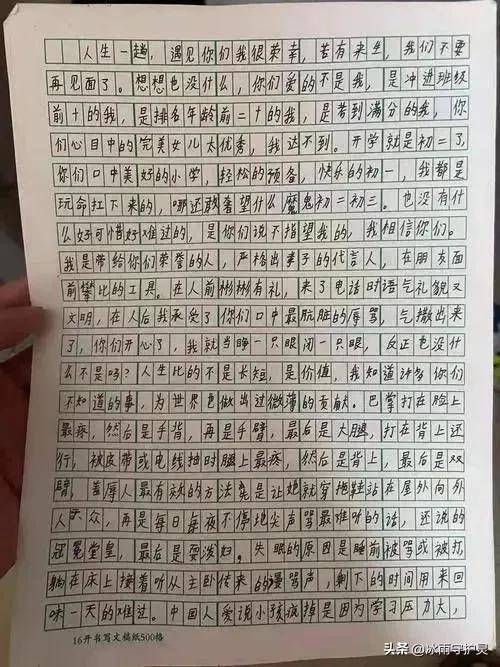 人生一趟，遇见你们我很荣幸，若有来生，我们不要
再见面了。想想也没什么，你们爱的不是我，是冲进班级
前十的我，是排名年龄前二十的我，是考到满分的我，你
们心目中的完美女儿太优秀，我达不到。开学就是初二了，
你们口中美好的小学，轻松的预备，快乐的初一，我都是
玩命扛下来的，哪还敢奢望什么魔鬼初二初三。也没有什
么好可惜好难过的，是你们说不指望我的，我相信你们。
我是带给你们荣誉的人，严格出事子的代言人，在朋友面
前攀比的工具。在人前彬彬有礼，来了电话时语气礼貌又
文明，在人后我承受了你们口中最肮脏的辱骂，气撒出来
了，你们开心了，我就当睁一只眼闭一只眼，反正也没什
么不是吗？人生比的不是长短，是价值，我知道许多你们
不知道的事，为世界也做出过微薄的贡献。巴掌打在脸上
最疼，然后是手背，再是手臂，最后是大腿，打在背上还
行，被皮带或电线抽时腿上最疼，然后是背上，最后是双
臂，羞辱人最有效的方法是让她就穿拖鞋站在屋外向外
人 众，再是每日每夜不停地尖声骂最难听的话，还说的
冠冕堂皇，最后是耍泼妇。失眠的原因是睡前被骂或被打
躺在床上接着听从主卧传来的谩骂声，剩下的时间用来回
味一天的难过。中国人爱说小孩疯掉是因为学习压力大，
16开书写文稿纸500格
头条 @冰雨守护灵